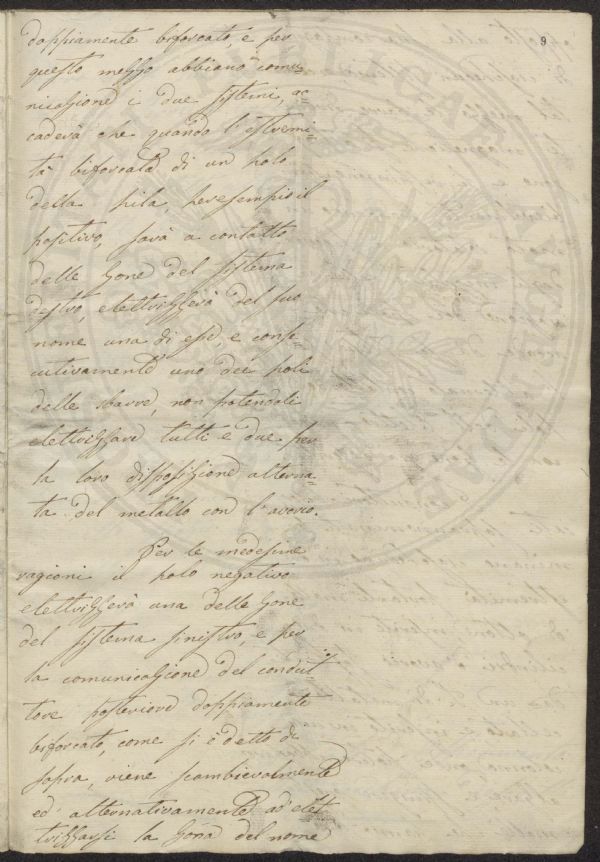 9
doppiamente biforcato, e per
questo mezzo abbiano comu-
nicazione i due sistemi, ac-
caderà che quando l'estremi-
tà biforcata di un polo
della pila, per esempio il
positivo, sarà a contatto
delle zone del sistema
destro, elettrizzerà del suo
nome una di esse, e conse-
cutivamente uno dei poli
delle sbarre, non potendoli
elettrizzare tutti e due per
la loro disposizione alterna-
ta del metallo con l'avorio.
Per le medesime
ragioni il polo negativo
elettrizzerà una delle zone
del sistema sinistro, e per
la comunicazione del condut-
tore posteriore doppiamente
biforcato, come si è detto di
sopra, viene scambievolmente
ed alternativamente ad elet-
trizzarsi la zona del nome